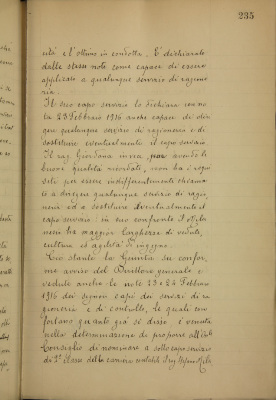 235
cità e l'ottimo in condotta. È dichiarato
dalle stesse note come capace di essere
applicato a qualunque servizio di ragione
ria.
Il suo capo servizio lo dichiara con no
ta 23 Febbraio 1916 anche capace di diri
gere qualunque servizio di ragioneria e di
sostituire eventualmente il capo servizio.
Il rag. Giordana invece, pur avendo le
buone qualità ricordate, non ha i requi
siti per essere indifferentemente chiamato
a dirigere qualunque servizio di ragio
neria ed a sostituire eventualmente il
capo servizio: in suo confronto il
ha maggior larghezza di vedute,
cultura ed agilità d'ingegno.
Ciò stante la Giunta su confor
me avviso del Direttore generale e
vedute anche le note 23 e 24 Febbraio
1916 dei signori capi dei servizi di ra
gioneria e di controllo, le quali con
fortano quanto già si disse, è venuta
nella determinazione di proporre all'
Consiglio di nominare a sotto capo servizio
di 2ª classe della carriera contabile il rag.